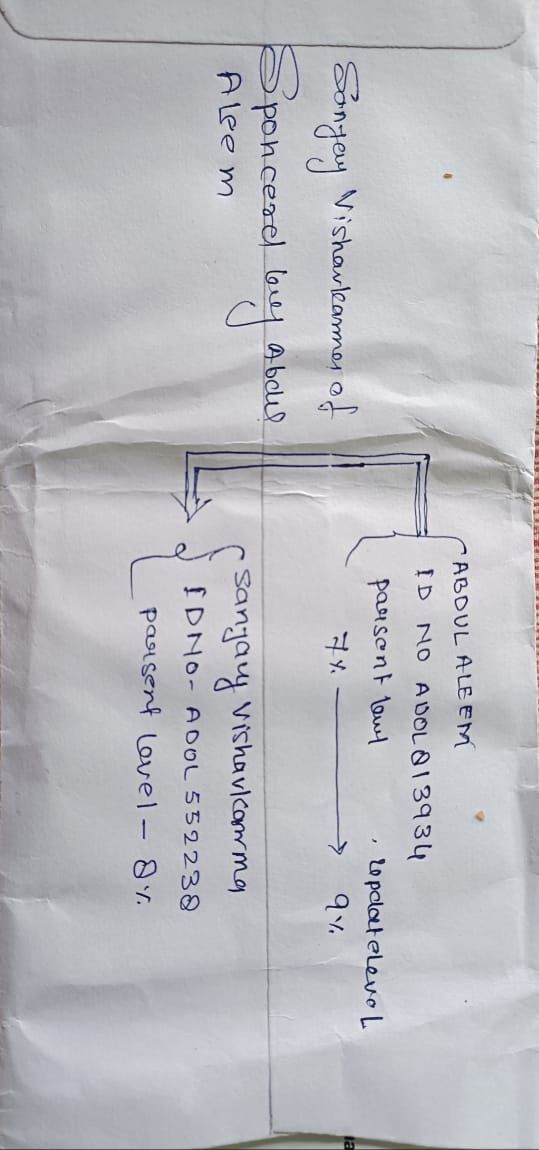 Sanjay Vishavkarma of
Sponcered by Abdul
Aleem
ABDUL ALEEM
ID NO ADOL813934
parsent level , updatelevel
7% → 9%
Sanjay Vishavkarma
IDNO- ADOL 552238
parsent Level - 8%